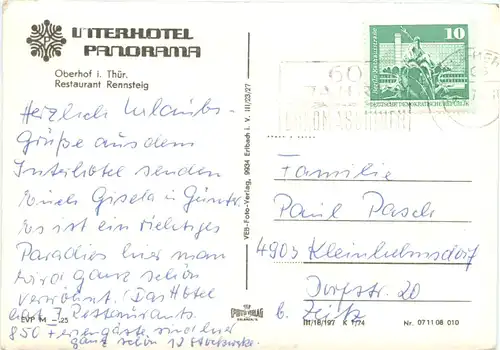 INTERHOTEL
PANORAMA
Oberhof i. Thür.
Restaurant Rennsteig
Herzlich Urlaubs-
Grüße aus dem
Interhotel senden
Euch Gisela u. Günter.
Es ist ein richtiges
Paradies hier man
wird ganz schön
verwöhnt. Das Hotel
hat 7 Restaurants.
850 Feriengäste sind hier
ganz schön 13 Stockwerke.
EVP M –,25
VEB-Foto-Verlag, 9934 Erlbach i. V. III/23/27
10
DEUTSCHE DEMOKRATISCHE REPUBLIK
60
Familie
Paul Pasch
4903 Kleinhelmsdorf
Dorfstr. 20
b. Zeitz
III/18/197 K 1/74 Nr. 07 11 08 010